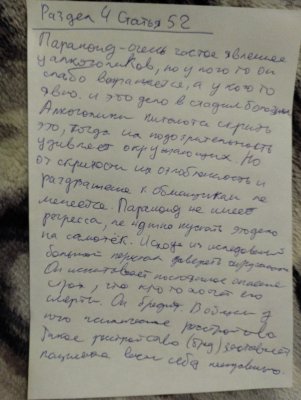 Раздел 4 Статья 52
Параноид - очень частое явление
у алкоголиков, но у кого то он
слабо выражается, а у кого то
явно. и это дело в стадии болезни
Алкоголики пытаются скрыть
это, когда их подозрительность
удивляет окружающих. Но
от скрытости их озлобленность и
раздражение к обидчикам не
меняется. Параноид не имеет
регресса, не нужно пускать это дело
на самотёк. Исходя из исследований
больной перестал доверять окружающим
Он испытывает постоянное опасение
, что кто то хочет его
смерти. Он бредит. В общем у
него психическое расстройство
Такое расстройство (бред) заставляет
пациента вести себя неправильно.